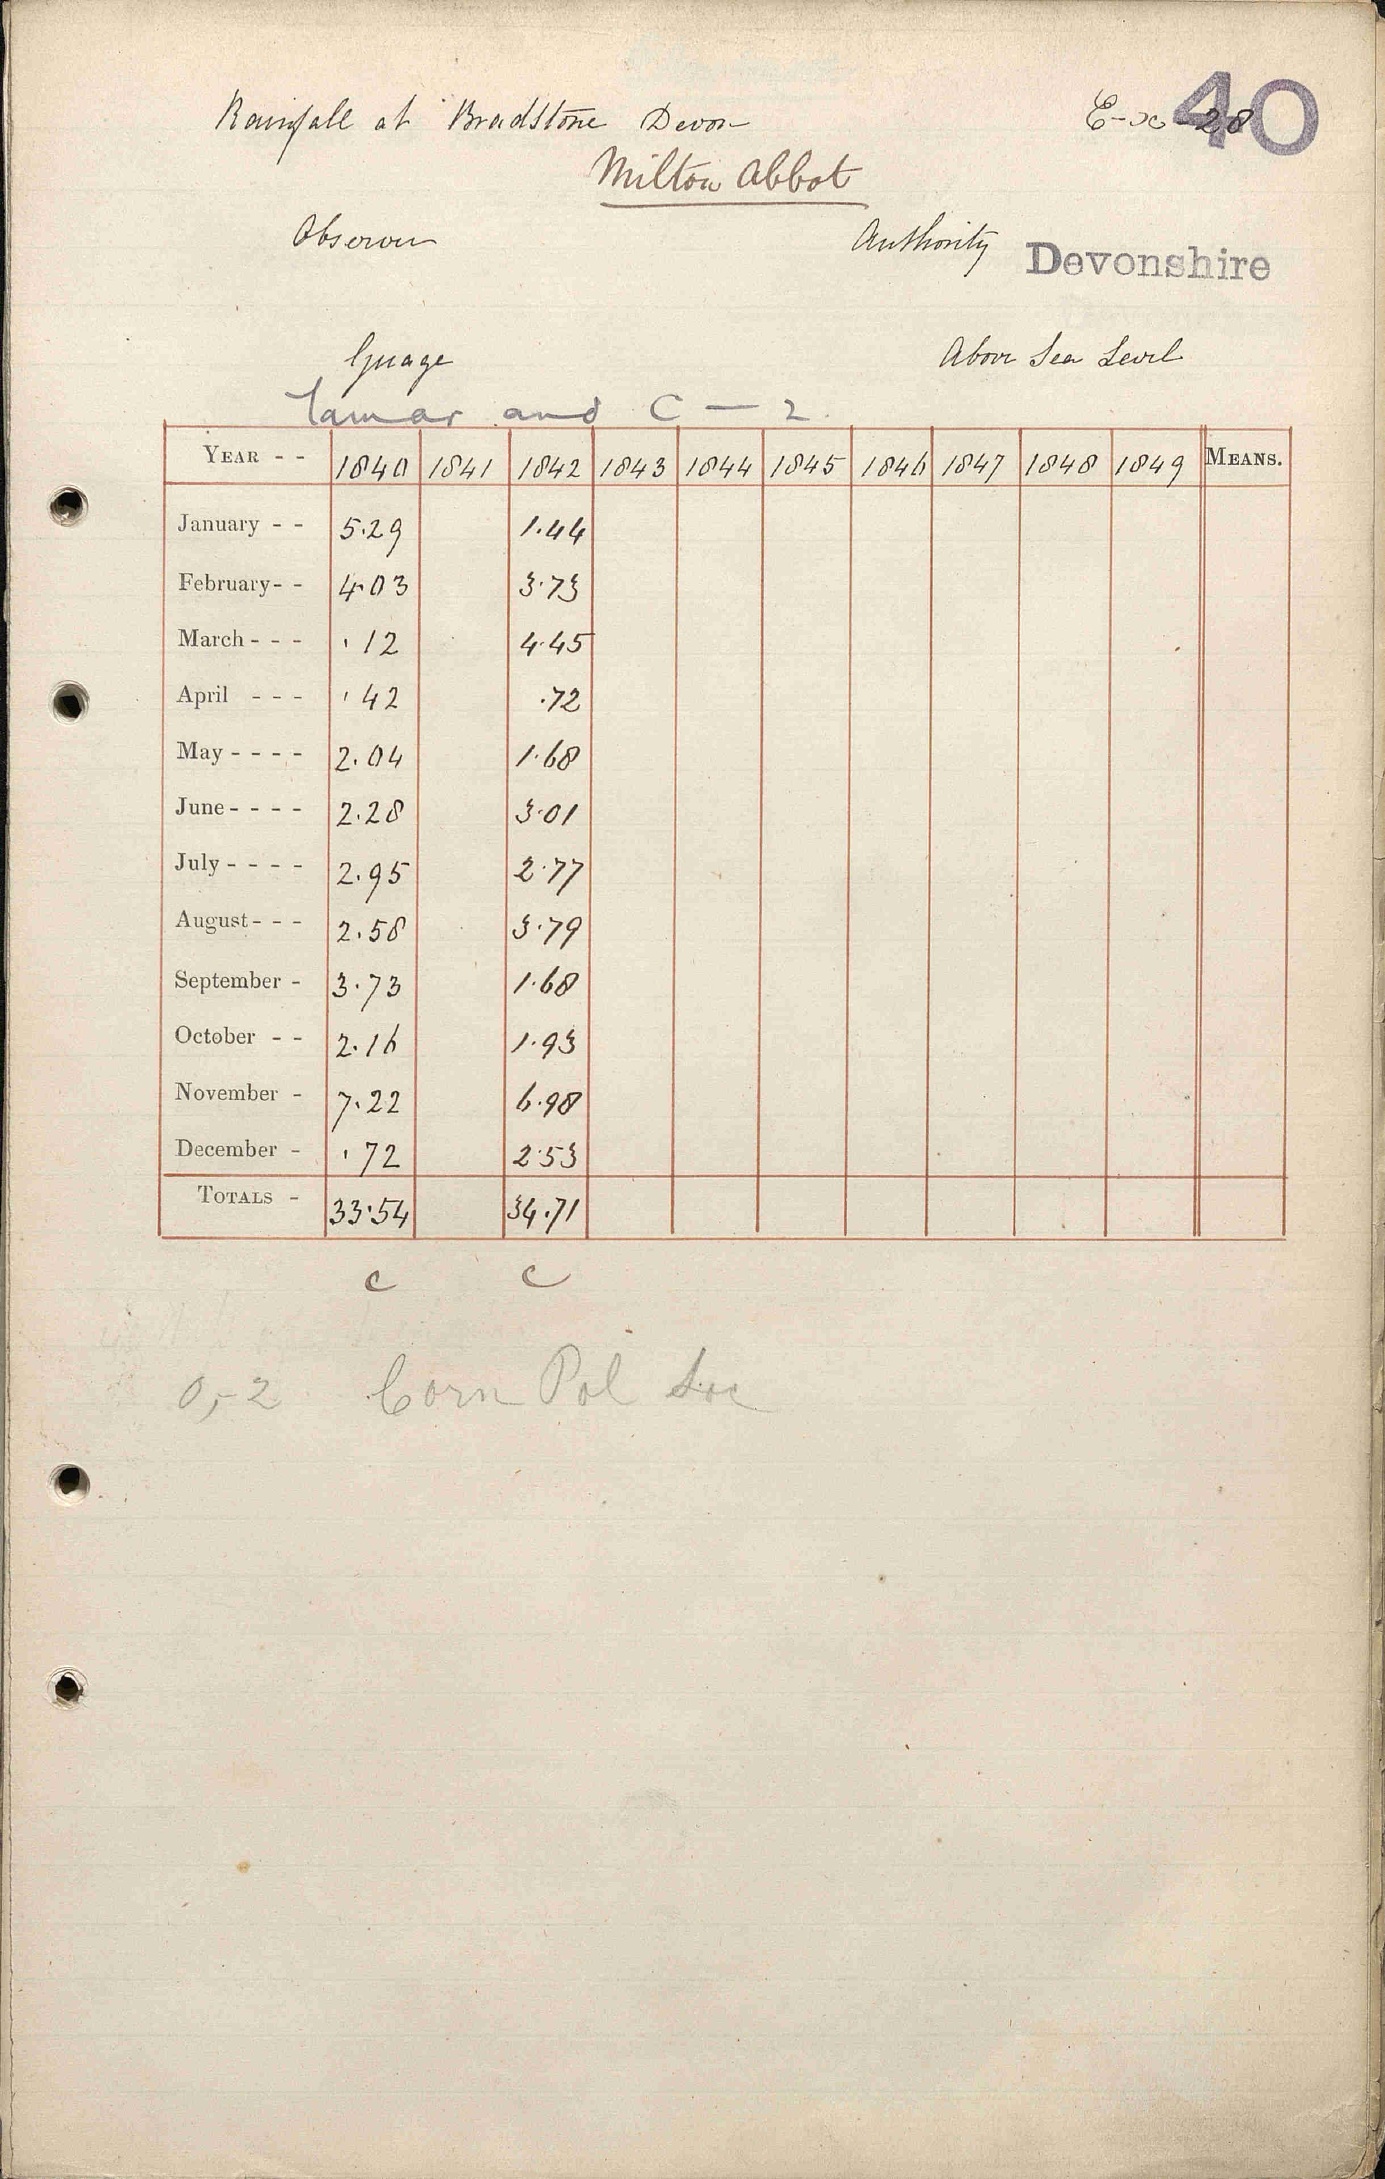 40
Rainfall at Bradstone Devon
Milton Abbot
Observer Authority Devonshire
Guage Above Sea Level
Tamar and C — 2
YEAR - - 1840 1841 1842 1843 1844 1845 1846 1847 1848 1849 MEANS.
January - - 5.29 1.44
February - - 4.03 3.73
March - - - .12 4.45
April - - - .42 .72
May - - - - 2.04 1.68
June - - - - 2.28 3.01
July - - - - 2.95 2.77
August - - - 2.58 3.79
September - 3.73 1.68
October - - 2.16 1.93
November - 7.22 6.98
December - .72 2.53
TOTALS - 33.54 34.71
c c
0,-2 Corn Pol Soc